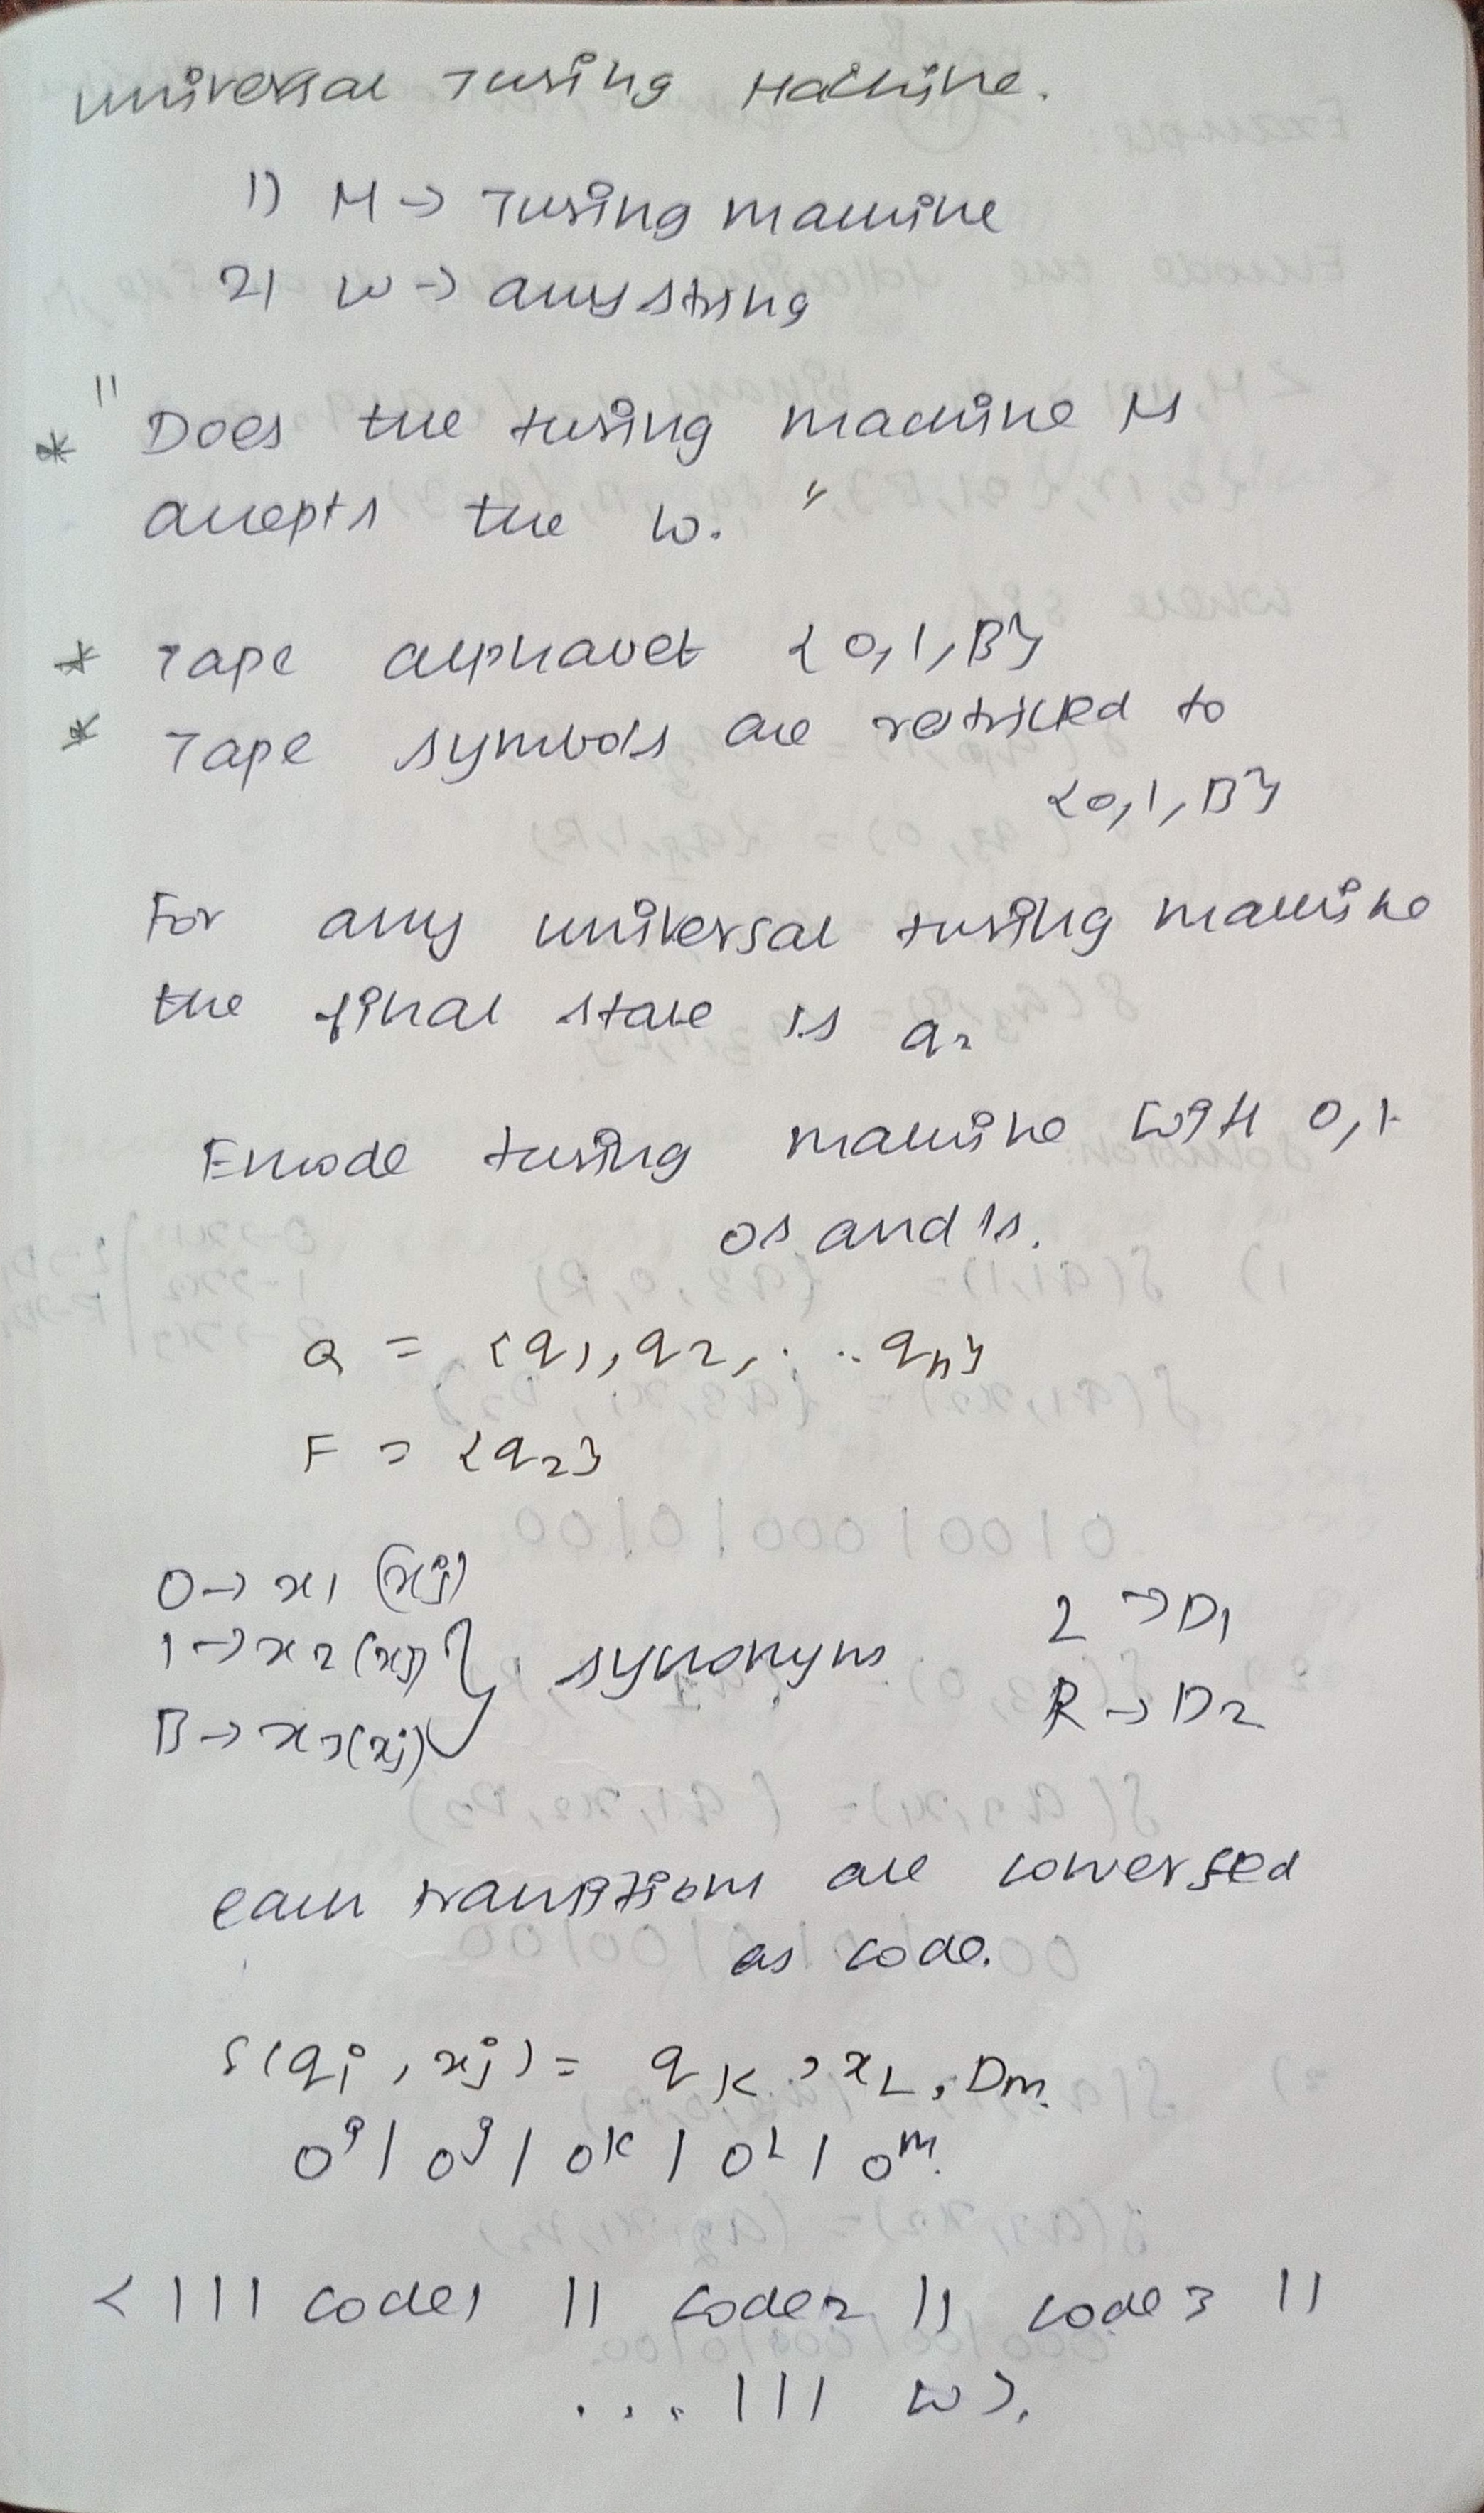 Universal Turing Machine.
1) M → Turing machine
2) w → any string
" Does the turing machine M
* accepts the w. "
* Tape alphabet {0,1,B}
* Tape symbols are restricted to
{0,1,B}
For any universal turing machine
the final state is q2
Encode turing machine with 0,1
0s and 1s.
Q = {q1, q2, . .. qn}
F = {q2}
0 → x1 (xj)
1 → x2 (xj) } synonym L → D1
B → x3 (xj) R → D2
each transitions are conversed
as code.
δ(qi, xj) = qk, xL, Dm.
0^i 1 0^j 1 0^k 1 0^L 1 0^m.
< 111 code1 11 code2 11 code3 11
... 111 w>.